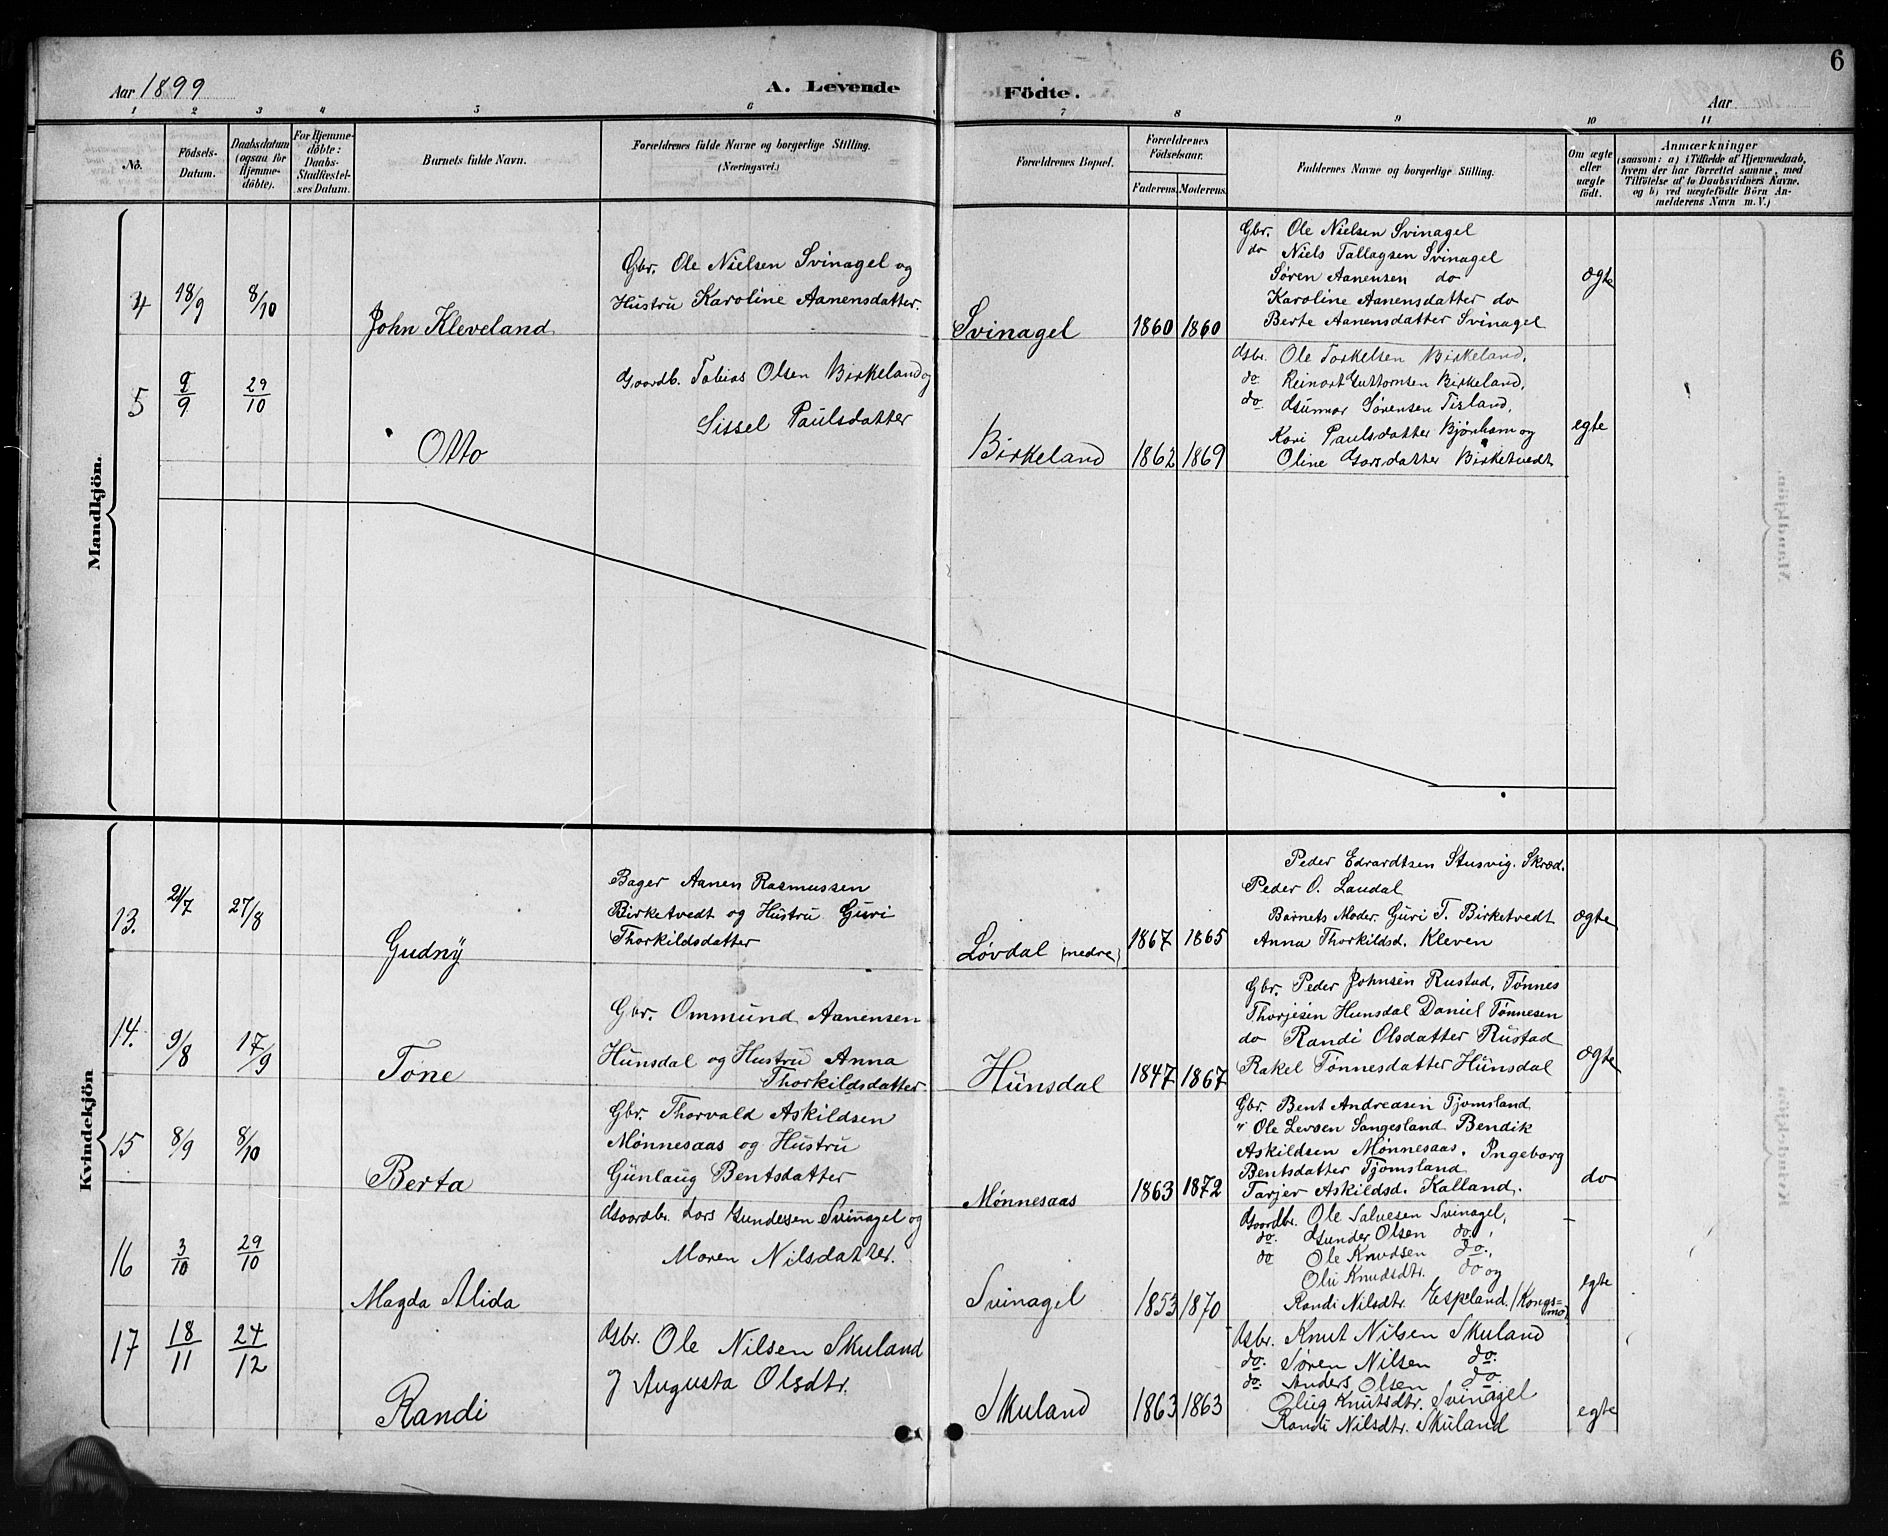 6
Aar 1899
A. Levende Födte.
Aar
1 2 3 4 5 6 7 8 9 10 11
No.
Födsels-
Datum.
Daabsdatum
(ogsaa för
Hjemme-
döbte).
For Hjemme-
döbte:
Daabs-
Stadfæstel-
ses Datum.
Barnets fulde Navn.
Forældrenes fulde Navne og borgerlige Stilling.
(Næringsvei.)
Forældrenes Bopæl.
Forældrenes
Födselsaar.
Faderens. Moderens.
Faddernes Navne og borgerlige Stilling.
Om ægte
eller
uægte
födt.
Anmærkninger
(saasom: a) i Tilfælde af Hjemmedaab,
hvem der har forrettet samme, med
Tilföielse af to Daabsvidners Navne.
og b) ved uægtefödte Börn An-
melderens Navn m. V.)
Mandkjön.
4
18/9
8/10
John Kleveland
Gbr. Ole Nielsen Svinagel og
Hustru Karoline Aanensdatter.
Svinagel
1860 1860
Gbr. Ole Nielsen Svinagel
do Niels Tallagsen Svinagel
Søren Aanensen do
Karoline Aanensdatter do
Berte Aanensdatter Svinagel
ægte
5
9/9
29/10
Otto
Gaardb. Tobias Olsen Birkeland og
Sissel Paulsdatter
Birkeland
1862 1869
Gbr. Ole Torkelsen Birkeland,
do. Reinart Guttormsen Birkeland,
do. Gunnar Sørensen
Kari Paulsdatter og
Oline Birketvedt
egte
Kvindekjön
13.
21/7
27/8
Gudny
Bager Aanen Rasmussen
Birketvedt og Hustru Guri
Thorkildsdatter
Løvdal (nedre)
1867 1865
Peder Edvardtsen Stusvig. Skræd.
Peder O. Laudal
Barnets Moder. Guri T. Birketvedt
Anna Thorkildsd. Kleven
ægte
14.
9/8
17/9
Tone
Gbr. Ommund Aanensen
Hunsdal og Hustru Anna
Thorkildsdatter
Hunsdal
1847 1867
Gbr. Peder Johnsen Rustad, Tønnes
Thorjesen Hunsdal Daniel Tønnesen
do Randi Olsdatter Rustad
Rakel Tønnesdatter Hunsdal
ægte
15
8/9
8/10
Berta
Gbr. Thorvald Askildsen
Mønnesaas og Hustru
Gunlaug Bentsdatter
Mønnesaas
1863 1872
Gbr. Bent Andreasen Tjomsland
" Ole Bendik
Askildsen Mønnesaas. Ingeborg
Bentsdatter Tjomsland
Tarjer Askildsd. Kalland.
do
16
3/10
29/10
Magda Alida
Gaardbr. Lars Gundersen Svinagel og
Maren Nilsdatter.
Svinagel
1853 1870
Gaardbr. Ole Salvesen Svinagel,
do. Gunder Olsen do.,
do Ole Knudsen do.,
Knudsdtr. do og
Randi Nilsdtr. Espland. (Kongs=
mo)
egte
17
18/11
24/12
Randi
Gbr. Ole Nilsen Skuland
og Augusta Olsdtr.
Skuland
1863 1863
Gbr. Knut Nilsen Skuland
do. Søren Nilsen do.
do. Anders Olsen do.
Knutsdtr. Svinagel
Randi Nilsdtr. Skuland
egte